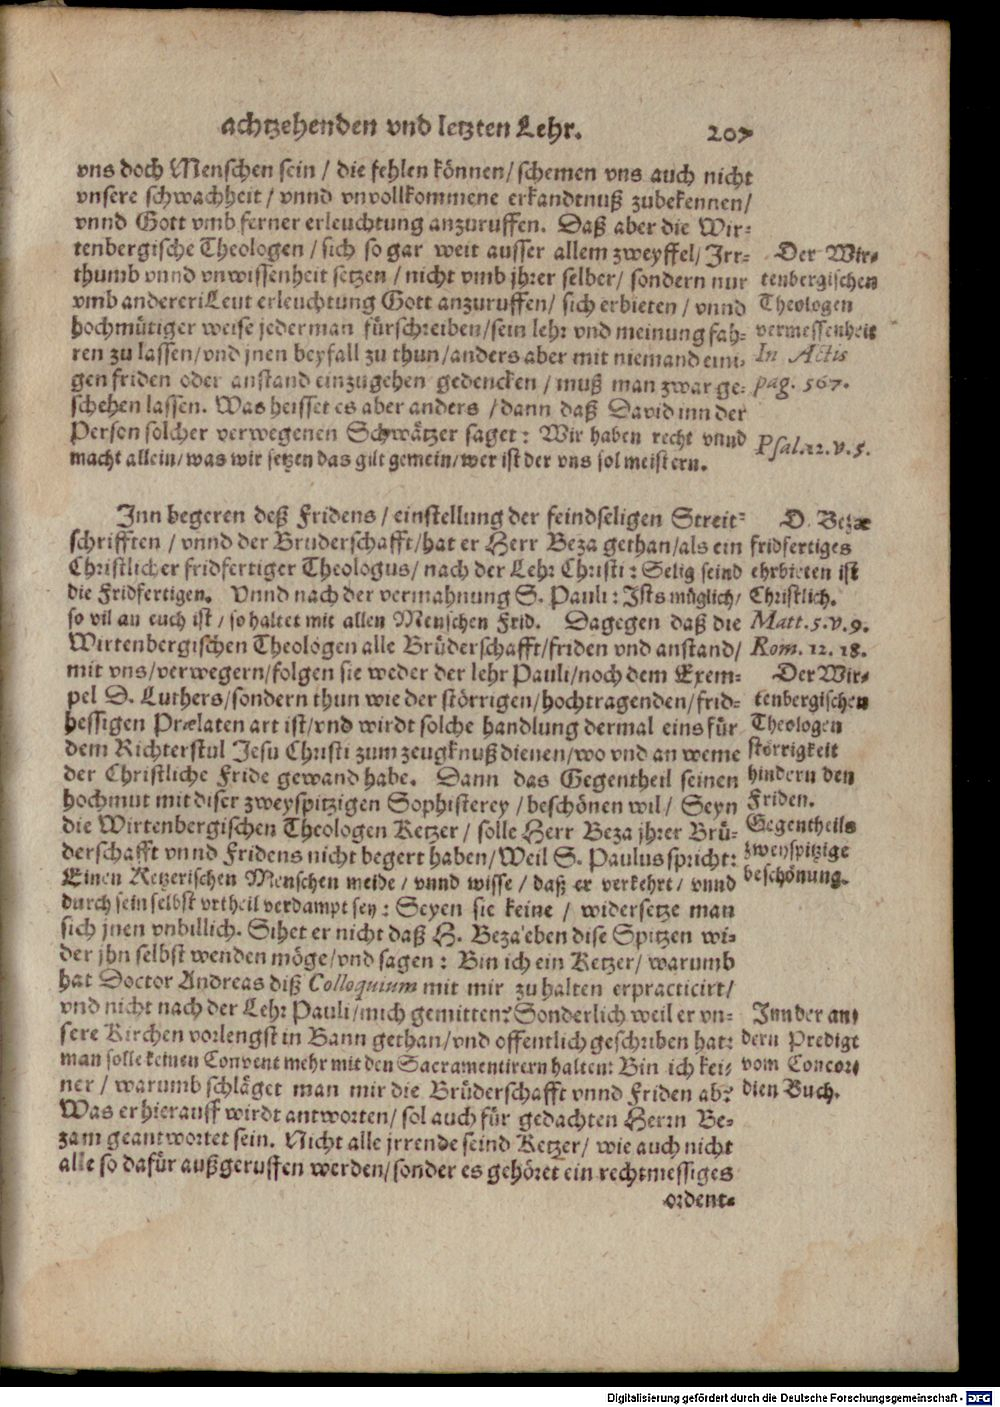 achtzehenden vnd letzten Lehr. 207
vns doch Menschen sein / die fehlen können / schemen vns auch nicht
vnsere schwachheit / vnnd vnvollkommene erkandtnuß zubekennen /
vnnd Gott vmb ferner erleuchtung anzuruffen. Daß aber die Wir-
tenbergische Theologen / sich so gar weit ausser allem zweyffel / Irr-
thumb vnnd vnwissenheit setzen / nicht vmb jhrer selber / sondern nur
vmb anderer Leut erleuchtung Gott anzuruffen / sich erbieten / vnnd
hochmütiger weise jederman fürschreiben / sein lehr vnd meinung fah-
ren zu lassen / vnd jnen beyfall zu thun / anders aber mit niemand eini-
gen friden oder anstand einzugehen gedencken / muß man zwar ge-
schehen lassen. Was heisset es aber anders / dann daß David inn der
Person solcher verwegenen Schwätzer saget: Wir haben recht vnnd
macht allein / was wir setzen das gilt gemein / wer ist der vns sol meistern.
Der Wir-
tenbergischen
Theologen
vermessenheit
In Actis
pag. 567.
Psal. 12. v. 5.
Inn begeren deß Fridens / einstellung der feindseligen Streit-
schrifften / vnnd der Bruderschafft / hat er Herr Beza gethan / als ein
Christlicher fridfertiger Theologus / nach der Lehr Christi: Selig seind
die Fridfertigen. Vnnd nach der vermahnung S. Pauli: Ists müglich /
so vil an euch ist / so haltet mit allen Menschen Frid. Dagegen daß die
Wirtenbergischen Theologen alle Brüderschafft / friden vnd anstand /
mit vns / verwegern / folgen sie weder der lehr Pauli / noch dem Exem-
pel D. Luthers / sondern thun wie der störrigen / hochtragenden / frid-
hessigen Prælaten art ist / vnd wirdt solche handlung dermal eins für
dem Richterstul Jesu Christi zum zeugknuß dienen / wo vnd an weme
der Christliche Fride gewand habe. Dann das Gegentheil seinen
hochmut mit diser zweyspitzigen Sophisterey / beschönen wil / Seyn
die Wirtenbergischen Theologen Ketzer / solle Herr Beza jhrer Brü-
derschafft vnnd Fridens nicht begert haben / Weil S. Paulus spricht:
Einen Ketzerischen Menschen meide / vnnd wisse / daß er verkehrt / vnnd
durch sein selbst vrtheil verdampt sey: Seyen sie keine / widersetze man
sich jnen vnbillich. Sihet er nicht daß H. Beza eben dise Spitzen wi-
der jhn selbst wenden möge / vnd sagen: Bin ich ein Ketzer / warumb
hat Doctor Andreas diß Colloquium mit mir zu halten erpracticirt /
vnd nicht nach der Lehr Pauli / mich gemitten? Sonderlich weil er vn-
sere Kirchen vorlengst in Bann gethan / vnd offentlich geschriben hat:
man solle keinen Convent mehr mit den Sacramentirern halten: Bin ich kei-
ner / warumb schläget man mir die Brüderschafft vnnd Friden ab?
Was er hierauff wirdt antworten / sol auch für gedachten Herrn Be-
zam geantwortet sein. Nicht alle jrrende seind Ketzer / wie auch nicht
alle so dafür außgeruffen werden / sonder es gehöret ein rechtmessiges
ordent-
D. Bezæ
fridfertiges
ehrbieten ist
Christlich.
Matt. 5. v. 9.
Rom. 12. 18.
Der Wir-
tenbergischen
Theologen
störrigkeit
hindern den
Friden.
Gegentheils
zweyspitzige
beschönung.
Inn der an-
dern Predigt
vom Concor-
dien Buch.
Digitalisierung gefördert durch die Deutsche Forschungsgemeinschaft - DFG